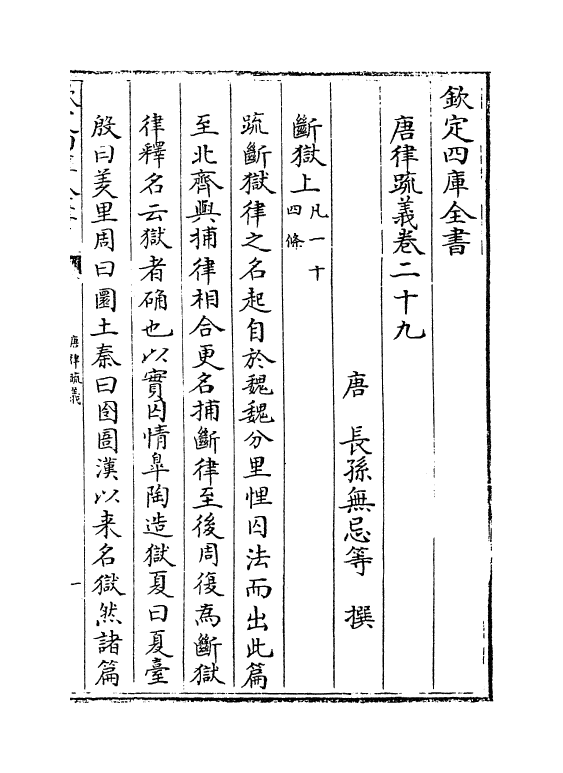 欽定四庫全書
唐律疏義卷二十九
唐 長孫無忌等 撰
斷獄上凡一十四條
疏斷獄律之名起自於魏魏分里悝囚法而出此篇
至北齊與捕律相合更名捕斷律至後周復為斷獄
律釋名云獄者确也以實囚情臯陶造獄夏曰夏臺
殷曰羑里周曰圜土秦曰囹圄漢以来名獄然諸篇
唐律疏義
一